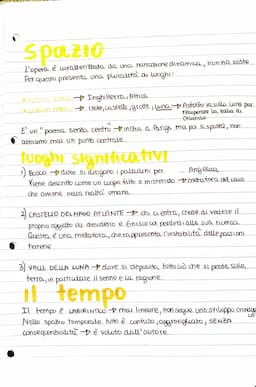 Spazio
L'opera è caratterizzata da una narrazione dinamica, non ha soste.
Per questo presenta una pluralità di luoghi:
Inghilterra, Africa
Isole, castelli, grotte, luna → Astolfo va sulla luna per
recuperare la follia di
Orlando
È un "poema senza centro" → inizia a Parigi ma poi si sposta, non
abbiamo mai un punto centrale.
luoghi significativi
1) Bosco → dove si dirigono i paladini per Angelica
Viene descritto come un luogo fitto e intricato → metafora del caos
che avviene nella realtà umana.
2) CASTELLO DEL MAGO ATLANTE → chi ci entra, crede di vedere il
proprio oggetto di desiderio e finisce di perdersi alla sua ricerca.
Questa, è una metafora, che rappresenta l'instabilità delle passioni
terrene
3) VALLE DELLA LUNA → dove si deposita, tutto ciò che si perde sulla
terra, in particolare il senno e la ragione.
il tempo
Il tempo è LABIRINTICO → mai lineare, non segue uno sviluppo cronologi
co
Nello spazio temporale tutto è confuso, aggrovigliato, SENZA
consequenzialità → è voluto dall'autore